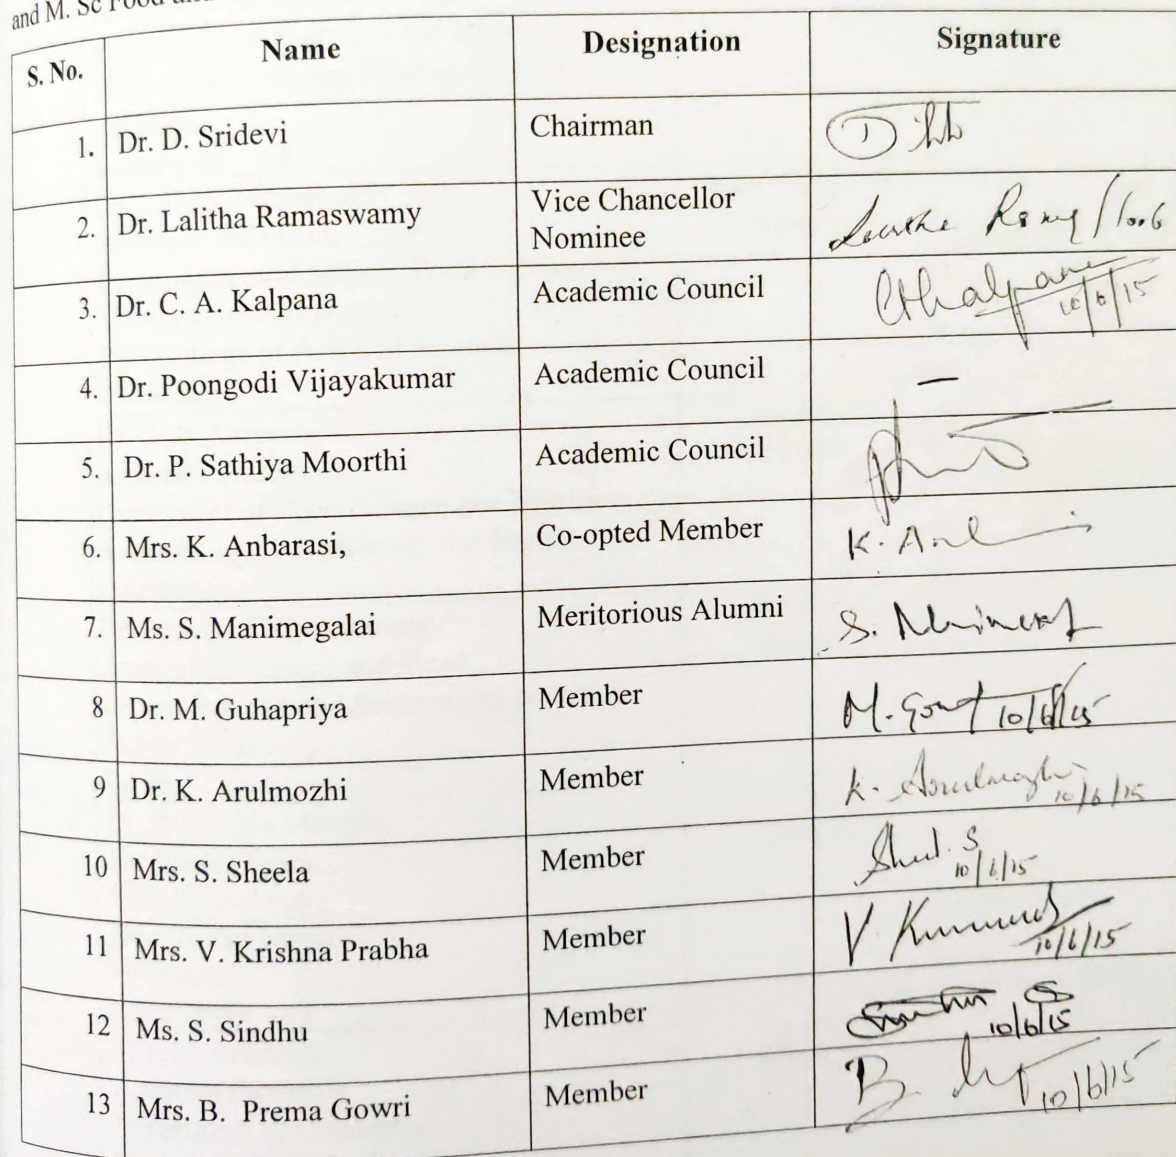 and M. Sc Food
S. No. Name Designation Signature
1. Dr. D. Sridevi Chairman
2. Dr. Lalitha Ramaswamy Vice Chancellor
Nominee
3. Dr. C. A. Kalpana Academic Council 10/6/15
4. Dr. Poongodi Vijayakumar Academic Council –
5. Dr. P. Sathiya Moorthi Academic Council
6. Mrs. K. Anbarasi, Co-opted Member
7. Ms. S. Manimegalai Meritorious Alumni
8 Dr. M. Guhapriya Member 10/6/15
9 Dr. K. Arulmozhi Member K. Arulmozhi 10/6/15
10 Mrs. S. Sheela Member 10/6/15
11 Mrs. V. Krishna Prabha Member 10/6/15
12 Ms. S. Sindhu Member 10/6/15
13 Mrs. B. Prema Gowri Member 10/6/15